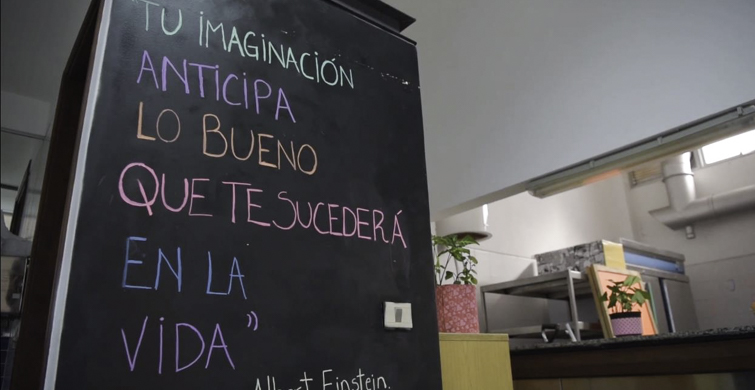 "TU IMAGINACIÓN
ANTICIPA
LO BUENO
QUE TE SUCEDERÁ
EN LA
VIDA"
Albert Einstein.